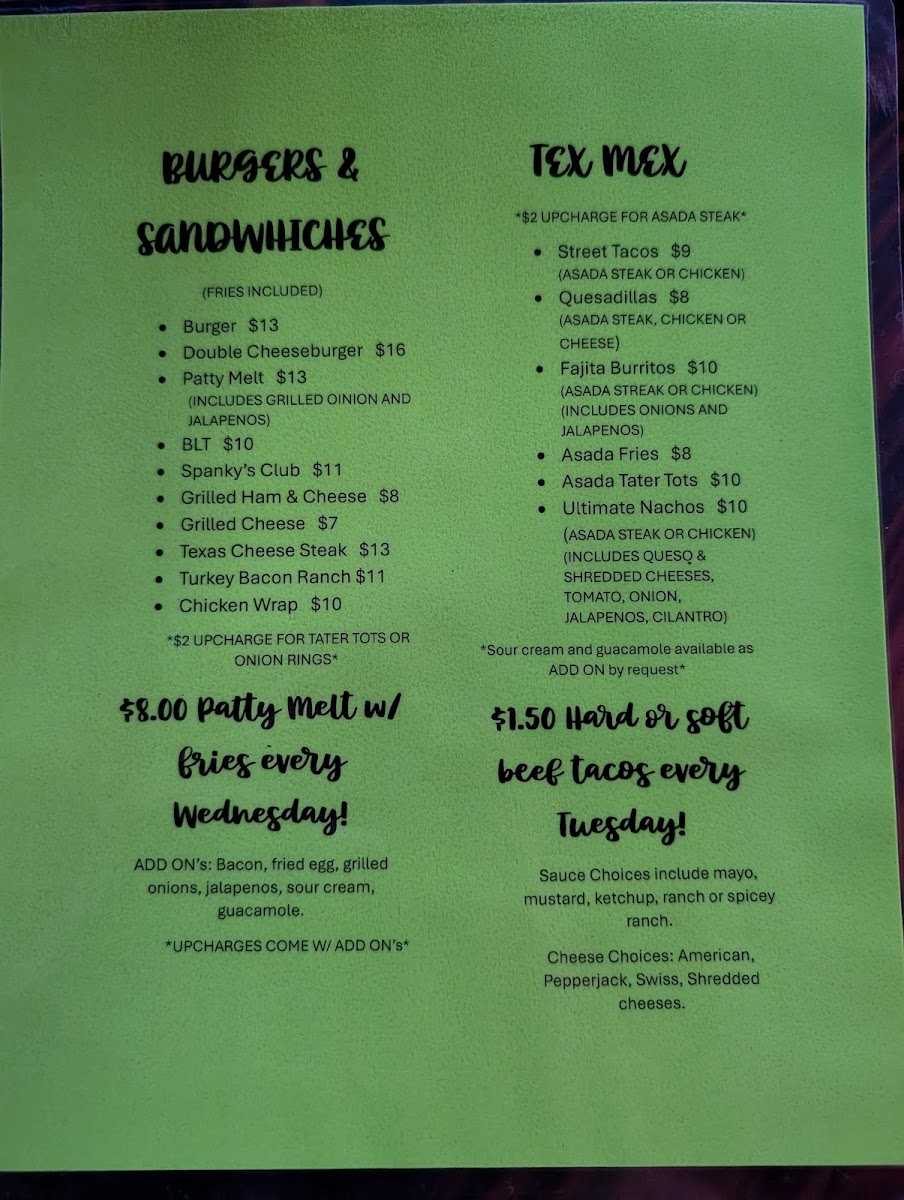 BURGERS &
SANDWHICHES
(FRIES INCLUDED)
• Burger $13
• Double Cheeseburger $16
• Patty Melt $13
(INCLUDES GRILLED OINION AND
JALAPENOS)
• BLT $10
• Spanky's Club $11
• Grilled Ham & Cheese $8
• Grilled Cheese $7
• Texas Cheese Steak $13
• Turkey Bacon Ranch $11
• Chicken Wrap $10
*$2 UPCHARGE FOR TATER TOTS OR
ONION RINGS*
$8.00 Patty Melt w/
fries every
Wednesday!
ADD ON's: Bacon, fried egg, grilled
onions, jalapenos, sour cream,
guacamole.
*UPCHARGES COME W/ ADD ON's*
TEX MEX
*$2 UPCHARGE FOR ASADA STEAK*
• Street Tacos $9
(ASADA STEAK OR CHICKEN)
• Quesadillas $8
(ASADA STEAK, CHICKEN OR
CHEESE)
• Fajita Burritos $10
(ASADA STREAK OR CHICKEN)
(INCLUDES ONIONS AND
JALAPENOS)
• Asada Fries $8
• Asada Tater Tots $10
• Ultimate Nachos $10
(ASADA STEAK OR CHICKEN)
(INCLUDES QUESO &
SHREDDED CHEESES,
TOMATO, ONION,
JALAPENOS, CILANTRO)
*Sour cream and guacamole available as
ADD ON by request*
$1.50 Hard or soft
beef tacos every
Tuesday!
Sauce Choices include mayo,
mustard, ketchup, ranch or spicey
ranch.
Cheese Choices: American,
Pepperjack, Swiss, Shredded
cheeses.